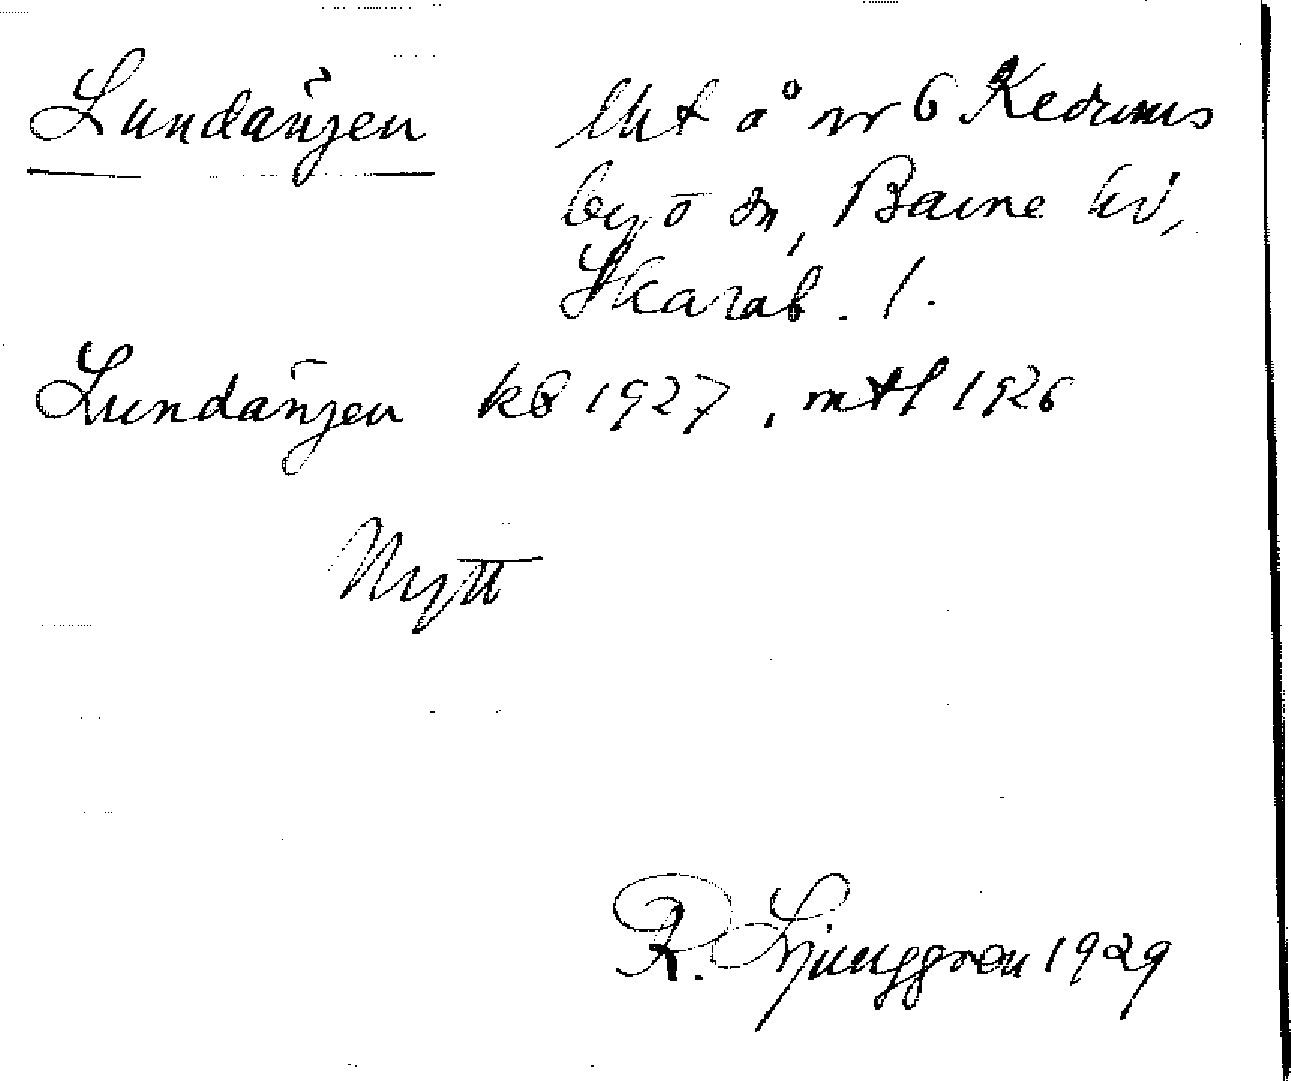 Lundängen lht å nr 6 Kedums
by o sn, Barne hd,
Skarab. l.
Lundängen kb 1927, mtl 1926
Nytt
R. Ljunggren 1929